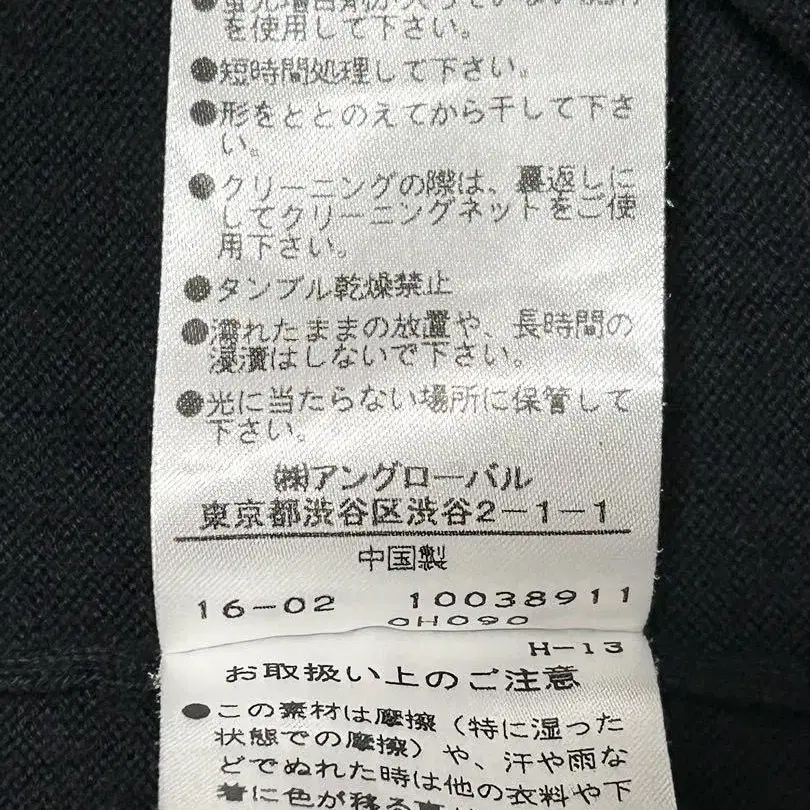 を使用して下さい。
●短時間処理して下さい。
●形をととのえてから干して下さ
い。
●クリーニングの際は、裏返しに
してクリーニングネットをご使
用下さい。
●タンブル乾燥禁止
●濡れたままの放置や、長時間の
浸漬はしないで下さい。
●光に当たらない場所に保管して
下さい。
㈱アングローバル
東京都渋谷区渋谷2-1-1
中国製
16-02 10038911
0H090
H-13
お取扱い上のご注意
●この素材は摩擦(特に湿った
状態での摩擦)や、汗や雨な
どでぬれた時は他の衣料や下
着に色が移る